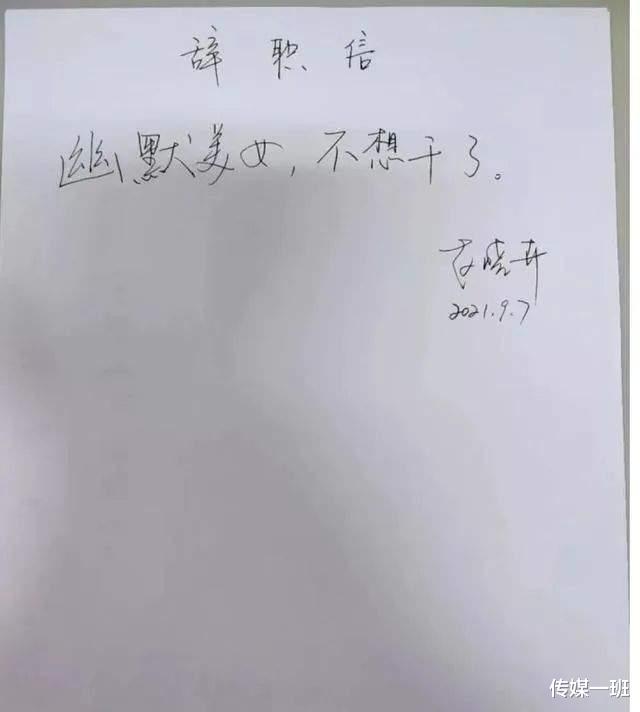 辞职信
幽默美女，不想干了。
袁晓卉
2021.9.7
传媒一班